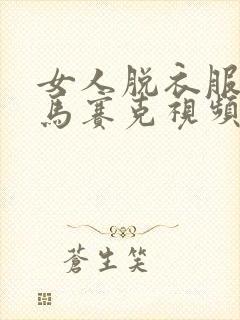 女人脱衣服
馬賽克視頻
蒼生笑